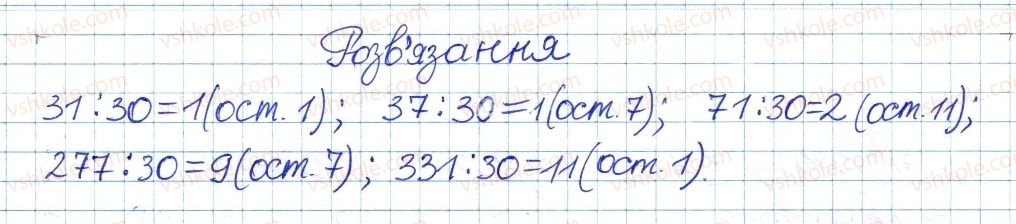 Розв'язання
31:30=1(ост. 1); 37:30=1(ост. 7); 71:30=2 (ост. 11);
277:30=9(ост. 7); 331:30=11(ост. 1).